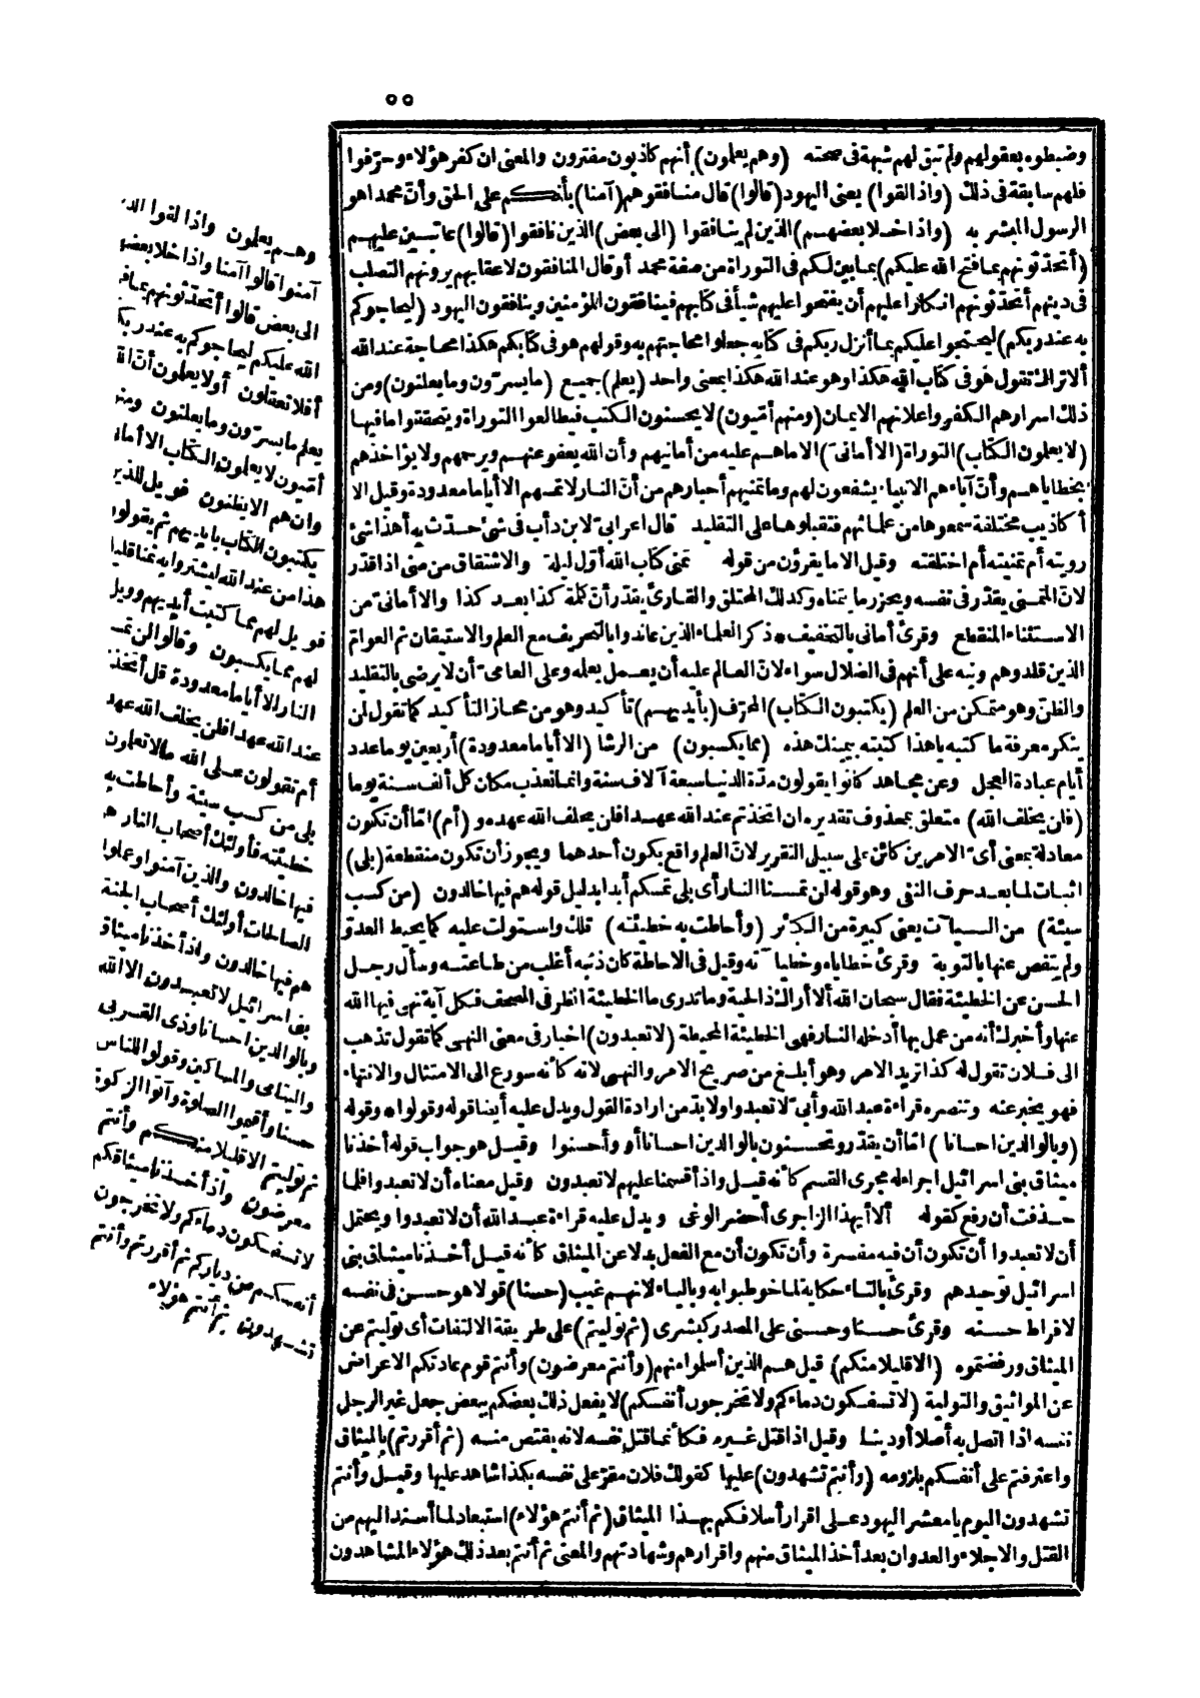 ٥٥
وضبطوه بعقولهم ولم تبق لهم شبهة فى صحته (وهم يعلمون) أنهم كاذبون مفترون والمعنى ان كفر هؤلاء وحرّفوا
فلهم سابقة فى ذلك (واذا لقوا) يعنى اليهود (قالوا) قال منافقوهم (آمنا) بأنكم على الحق وأنّ محمدا هو
الرسول المبشر به (واذا خلا بعضهم) الذين لم ينافقوا (الى بعض) الذين نافقوا (قالوا) عاتبين عليهم
(أتحدّثونهم بما فتح الله عليكم) بما بين لكم فى التوراة من صفة محمد أو قال المنافقون لاعقابهم يرونهم التصلب
فى دينهم أتحدّثونهم انكارا عليهم أن يفتحوا عليهم شيأ فى كتابهم فينافقون المؤمنين وينافقون اليهود (ليحاجوكم
به عند ربكم) ليحتجوا عليكم بما أنزل ربكم فى كتابه جعلوا محاجتهم به وقولهم هو فى كتابكم هكذا محاجة عند الله
ألا تراك تقول هو فى كتاب الله هكذا وهو عند الله هكذا بمعنى واحد (يعلم) جميع (ما يسرّون وما يعلنون) ومن
ذلك اسرارهم الكفر واعلانهم الايمان (ومنهم أمّيون) لا يحسنون الكتب فيطالعوا التوراة ويتحققوا ما فيها
(لا يعلمون الكتاب) التوراة (الا أمانىّ) الا ما هم عليه من أمانيهم وأن الله يعفو عنهم ويرحمهم ولا يؤاخذهم
بخطاياهم وأنّ آباءهم الانبياء يشفعون لهم وما تمنيهم أحبارهم من أنّ النار لا تمسهم الا أياما معدودة وقيل الا
أكاذيب مختلفة سمعوها من علمائهم فتقبلوها على التقليد قال اعرابىّ لابن دأب فى شئ حدّث به أهذا شئ
رويته أم تمنيته أم اختلقته وقيل الا ما يقرؤن من قوله تمنى كتاب الله أول ليلة والاشتقاق من منى اذا قدّر
لانّ المتمنى يقدّر فى نفسه ويحزر ما يتمناه وكذلك المختلق والقارئ يقدر أن كلمة كذا بعد كذا والا أمانىّ من
الاستثناء المنقطع وقرئ أمانى بالتخفيف * ذكر العلماء الذين عاندوا بالتحريف مع العلم والاستيقان ثم العوامّ
الذين قلدوهم ونبه على أنهم فى الضلال سواء لانّ العالم عليه أن يعمل بعلمه وعلى العامىّ أن لا يرضى بالتقليد
والظنّ وهو متمكن من العلم (يكتبون الكتاب) المحرّف (بأيديهم) تأكيد وهو من محاز التأكيد كما تقول لمن
ينكر معرفة ما كتبه يا هذا كتبته بيمينك هذه (مما يكسبون) من الرشا (الا أياما معدودة) أربعين يوما عدد
أيام عبادة العجل وعن مجاهد كانوا يقولون مدّة الدنيا سبعة آلاف سنة وانما نعذب مكان كل ألف سنة يوما
(فلن يخلف الله) متعلق بمحذوف تقديره ان اتخذتم عند الله عهدا فلن يخلف الله عهده و(أم) امّا أن تكون
معادلة بمعنى أىّ الامرين كائن على سبيل التقرير لانّ العلم واقع بكون أحدهما ويجوز أن تكون منقطعة (بلى)
اثبات لما بعد حرف النفى وهو قوله لن تمسنا النار أى بلى تمسكم أبدا بدليل قوله هم فيها خالدون (من كسب
سيئة) من السيآت يعنى كبيرة من الكبائر (وأحاطت به خطيئته) تلك واستولت عليه كما يحيط العدوّ
ولم يتفص عنها بالتوبة وقرئ خطاياه وخطيآته وقيل فى الاحاطة كان ذنبه أغلب من طاعته وسأل رجل
الحسن عن الخطيئة فقال سبحان الله ألا أراك ذا لحية وما تدرى ما الخطيئة انظر فى المصحف فكل آية نهى فيها الله
عنها وأخبرك أنه من عمل بها أدخله النار فهى الخطيئة المحيطة (لا تعبدون) اخبار فى معنى النهى كما تقول تذهب
الى فلان تقول له كذا تريد الامر وهو أبلغ من صريح الامر والنهى لانه كأنه سورع الى الامتثال والانتهاء
فهو يخبر عنه وتنصره قراءة عبد الله وأبىّ لا تعبدوا ولا بدّ من ارادة القول ويدل عليه أيضا قوله وقولوا * وقوله
(وبالوالدين احسانا) امّا أن يقدّر وتحسنون بالوالدين احسانا أو وأحسنوا وقيل هو جواب قوله أخذنا
ميثاق بنى اسرائيل اجراء له مجرى القسم كأنه قيل واذ أقسمنا عليهم لا تعبدون وقيل معناه أن لا تعبدوا فلما
حذفت أن رفع كقوله ألا أيهذا الزاجرى أحضر الوغى ويدل عليه قراءة عبد الله أن لا تعبدوا ويحتمل
أن لا تعبدوا أن تكون أن فيه مفسرة وأن تكون أن مع الفعل بدلا عن الميثاق كأنه قيل أخذنا ميثاق بنى
اسرائيل توحيدهم وقرئ بالتاء حكاية لما خوطبوا به وبالياء لانهم غيب (حسنا) قولا هو حسن فى نفسه
لافراط حسنه وقرئ حسنا وحسنى على المصدر كبشرى (ثم توليتم) على طريقة الالتفات أى توليتم عن
الميثاق ورفضتموه (الا قليلا منكم) قيل هم الذين أسلموا منهم (وأنتم معرضون) وأنتم قوم عادتكم الاعراض
عن المواثيق والتولية (لا تسفكون دماءكم ولا تخرجون أنفسكم) لا يفعل ذلك بعضكم ببعض جعل غير الرجل
نفسه اذا اتصل به أصلا أو دينا وقيل اذا قتل غيره فكأنما قتل نفسه لانه يقتص منه (ثم أقررتم) بالميثاق
واعترفتم على أنفسكم بلزومه (وأنتم تشهدون) عليها كقولك فلان مقرّ على نفسه بكذا شاهد عليها وقيل وأنتم
تشهدون اليوم يا معشر اليهود على اقرار أسلافكم بهذا الميثاق (ثم أنتم هؤلاء) استبعاد لما أسند اليهم من
القتل والاجلاء والعدوان بعد أخذ الميثاق منهم واقرارهم وشهادتهم والمعنى ثم أنتم بعد ذلك هؤلاء المشاهدون
وهم يعلمون واذا لقوا الذ
آمنوا قالوا آمنا واذا خلا بعضه
الى بعض قالوا أتحدّثونهم بما ف
الله عليكم ليحاجوكم به عند ربك
أفلا تعقلون أولا يعلمون أن الله
يعلم ما يسرّون وما يعلنون ومنه
أمّيون لا يعلمون الكتاب الا أمان
وان هم الا يظنون فويل للذين
يكتبون الكتاب بأيديهم ثم يقولون
هذا من عند الله ليشتروا به ثمنا قليلا
فويل لهم مما كتبت أيديهم وويل
لهم مما يكسبون وقالوا لن تمس
النار الا أياما معدودة قل أتخذ
عند الله عهدا فلن يخلف الله عهد
أم تقولون على الله ما لا تعلمون
بلى من كسب سيئة وأحاطت به
خطيئته فأولئك أصحاب النار ه
فيها خالدون والذين آمنوا وعملوا
الصالحات أولئك أصحاب الجنة
هم فيها خالدون واذ أخذنا ميثاق
بنى اسرائيل لا تعبدون الا الله
وبالوالدين احسانا وذى القربى
واليتامى والمساكين وقولوا للناس
حسنا وأقيموا الصلوة وآتوا الزكوة
ثم توليتم الا قليلا منكم وأنتم
معرضون واذ أخذنا ميثاقكم
لا تسفكون دماءكم ولا تخرجون
أنفسكم من دياركم ثم أقررتم وأنتم
تشهدون ثم أنتم هؤلاء